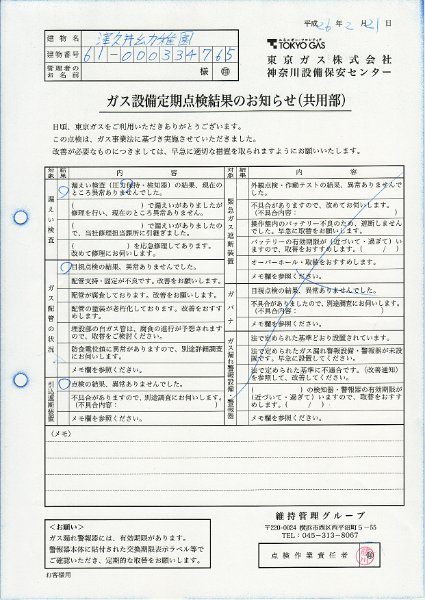 平成26年2月21日
建物名 津久井幼稚園
建物番号 61-000334765
管理者のお名前 様 ㊞
TOKYO GAS
東京ガス株式会社
神奈川設備保安センター
ガス設備定期点検結果のお知らせ(共用部)
日頃、東京ガスをご利用いただきありがとうございます。
この点検は、ガス事業法に基づき実施させていただきました。
改善が必要なものにつきましては、早急に適切な措置を取られますようにお願いいたします。
対象 結果 内容
漏えい検査
漏えい検査(圧力保持・検知器)の結果、現在のところ異常ありませんでした。
( )で漏えいがありましたが修理を行い、現在のところ異常ありません。
( )で漏えいがありましたので、当社修理担当箇所に引継ぎました。
( )を応急修理してあります。改めて修理にお伺いします。
ガス配管の状況
目視点検の結果、異常ありませんでした。
配管支持・固定が不良です。改善をお願いします。
配管が腐食しております。改善をお願いします。
配管の塗装が老朽化しております。改善をおすすめします。
埋設部の白ガス管は、腐食の進行が予想されますので、取替をご検討ください。
防食電位値に異常がありますので、別途詳細調査にお伺いします。
メモ欄を参照ください。
引込管遮断装置
点検の結果、異常ありませんでした。
不具合がありますので、別途調査にお伺いします。(不具合内容: )
メモ欄を参照ください。
対象 結果 内容
緊急ガス遮断装置
外観点検・作動テストの結果、異常ありませんでした。
不具合がありますので、改めてお伺いします。(不具合内容: )
操作盤内のバッテリー不良のため、遮断しませんでした。早急に取替をお願いします。
バッテリーの有効期限が(近づいて・過ぎて)いますので、取替をおすすめします。( / )
オーバーホール・取替をおすすめします。
メモ欄を参照ください。
ガバナ
目視点検の結果、異常ありませんでした。
不具合がありましたので、別途調査にお伺いします。(不具合内容: )
メモ欄を参照ください。
ガス漏れ警報設備・警報器
法で定められた基準どおり設置されています。
法で定められたガス漏れ警報設備・警報器が未設置です。早急に設置してください。
法で定められた基準に不適合です。(改善通知)を参照して、改善してください。
( )の検知器・警報器の有効期限が(近づいて・過ぎて)いますので、取替をおすすめします。( / )
メモ欄を参照ください。
(メモ)
維持管理グループ
〒220-0024 横浜市西区西平沼町5-55
TEL:045-313-8067
点検作業責任者 ㊞
<お願い>
ガス漏れ警報器には、有効期限があります。
警報器本体に貼付された交換期限表示ラベル等で
ご確認いただき、定期的な取替をお願いします。
お客様用